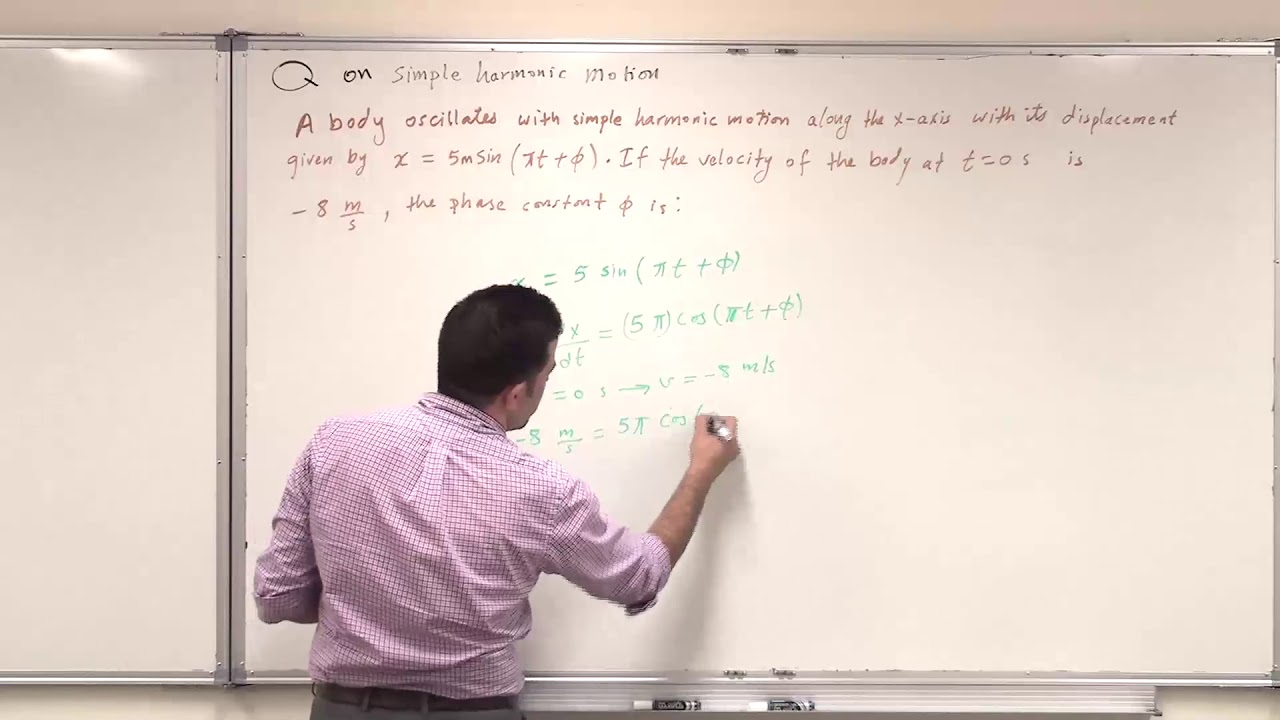 Q on simple harmonic motion
A body oscillates with simple harmonic motion along the x-axis with its displacement
given by x = 5m sin (πt + ϕ). If the velocity of the body at t = 0 s is
-8 m/s, the phase constant ϕ is:
x = 5 sin (πt + ϕ)
x/dt = (5π) cos (πt + ϕ)
= 0 s → v = -8 m/s
-8 m/s = 5π cos(